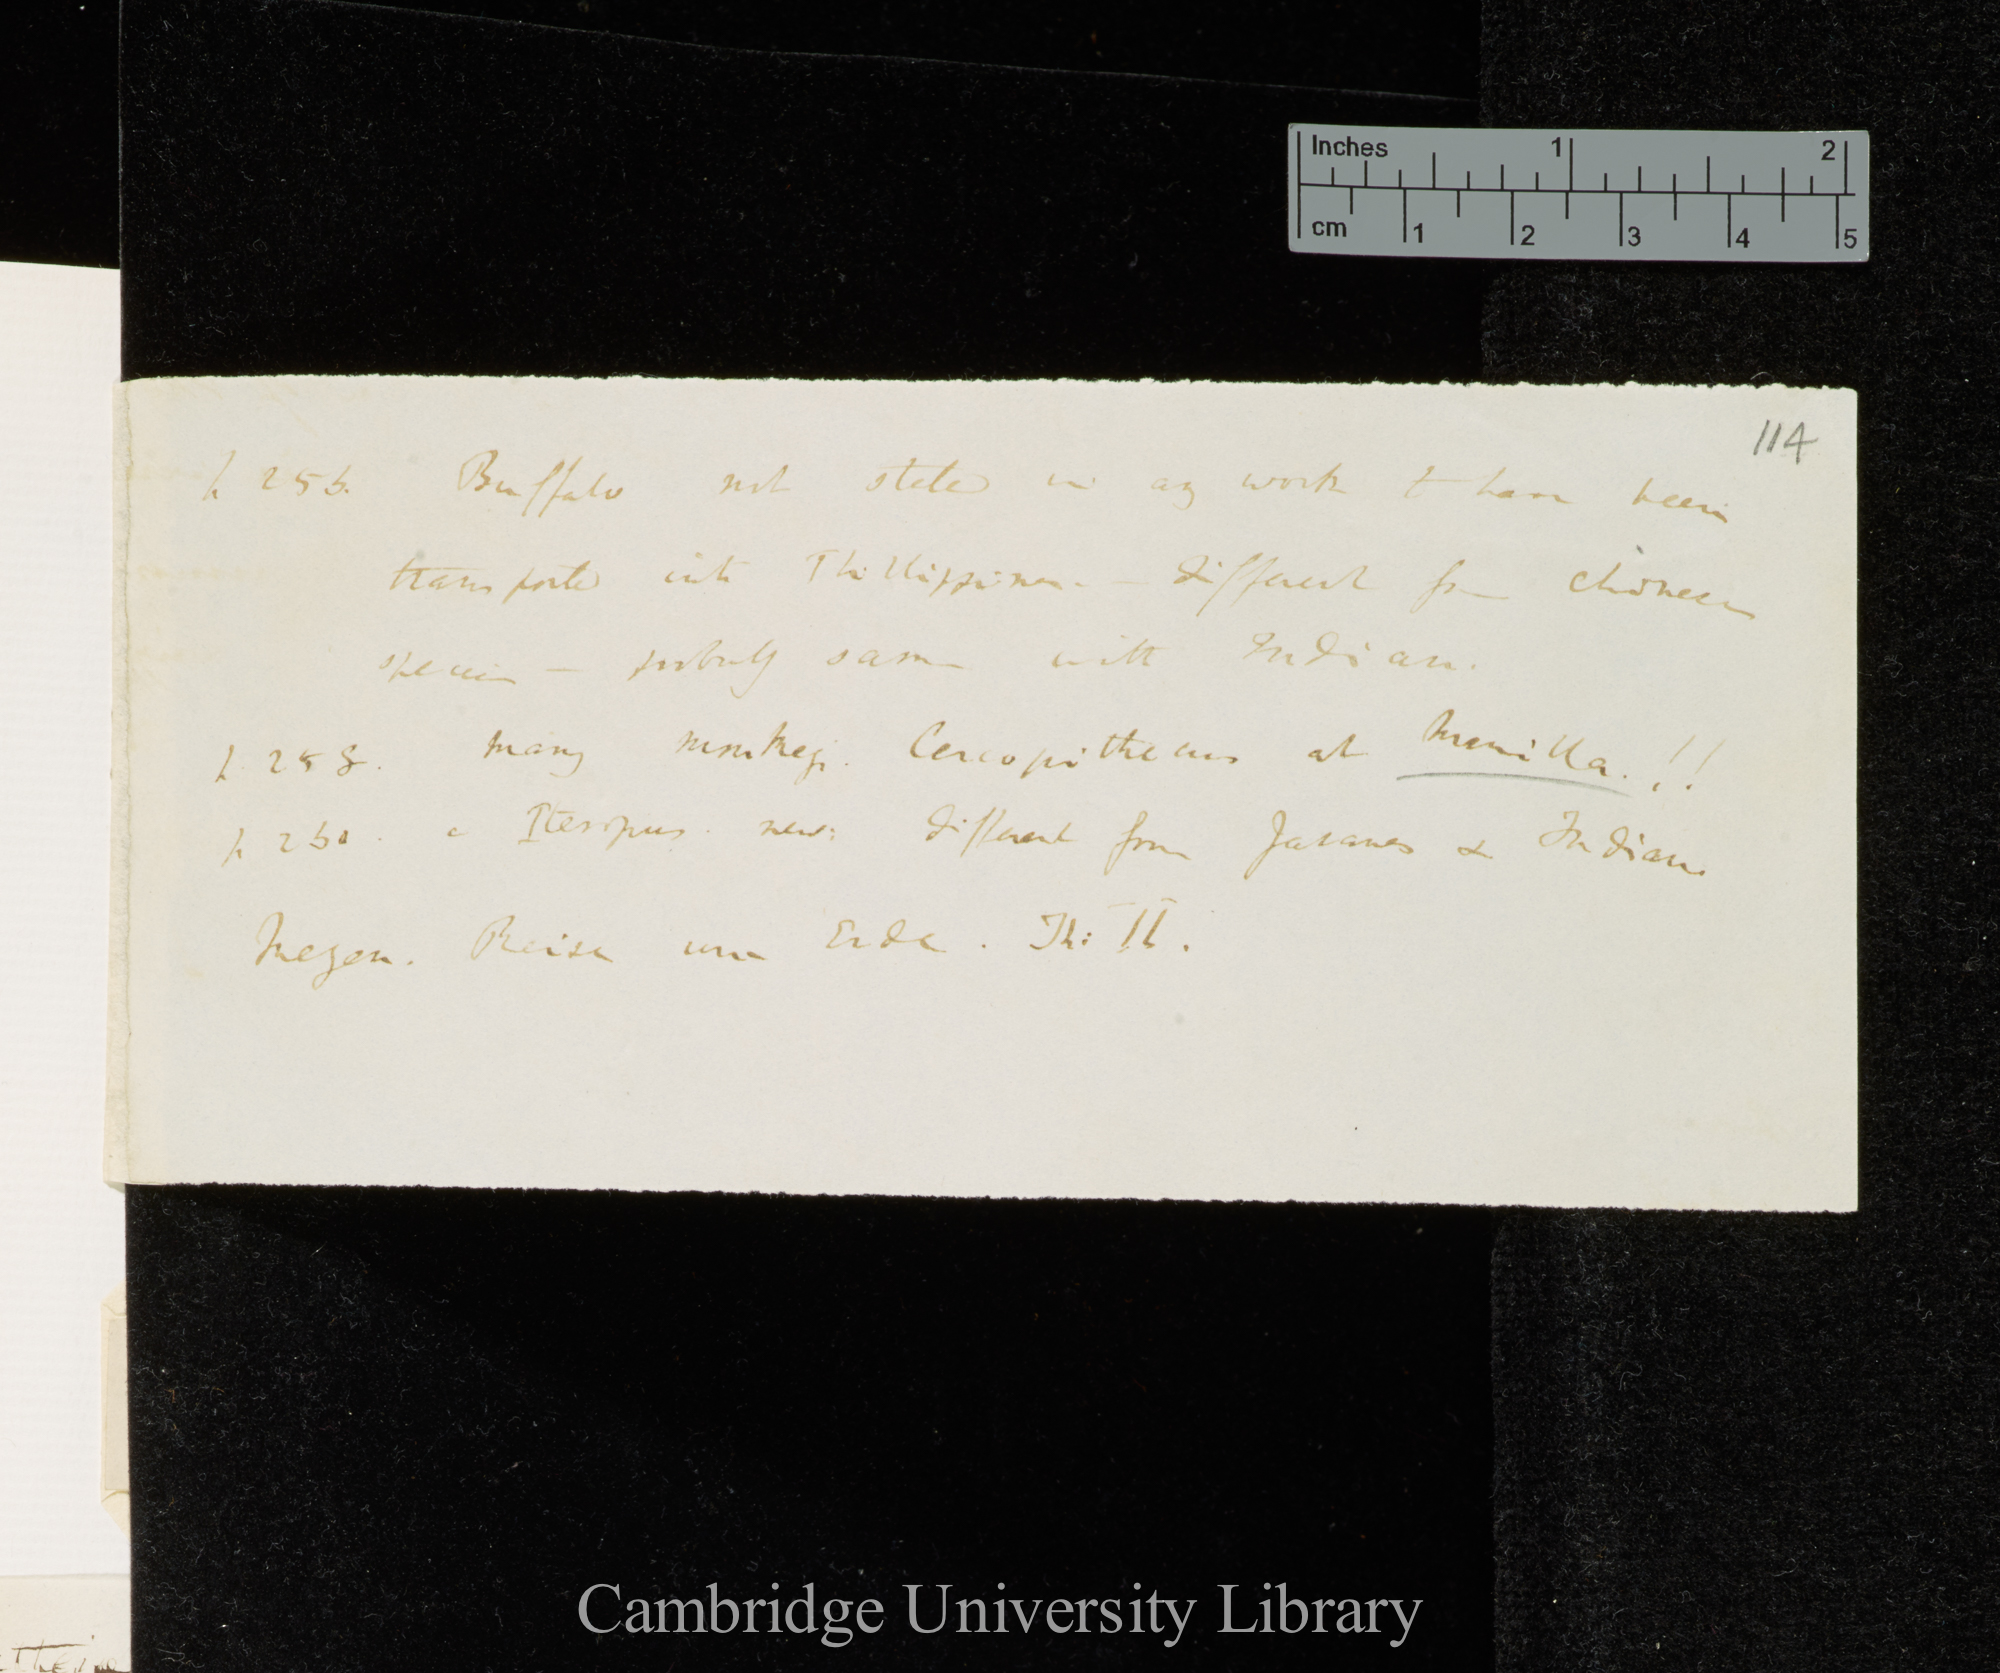 Inches 1 2
cm 1 2 3 4 5
114
p. 256. Buffalo not stated in any work to have been
transported into Phillippines. — different from Chinese
species — probably same with Indian.
p. 258. Many monkeys. Cercopithecus at Manilla.!!
p. 260. a Pteropus. new: different from Javanes & Indian.
Meyen. Reise um Erde. Th: II.
Cambridge University Library